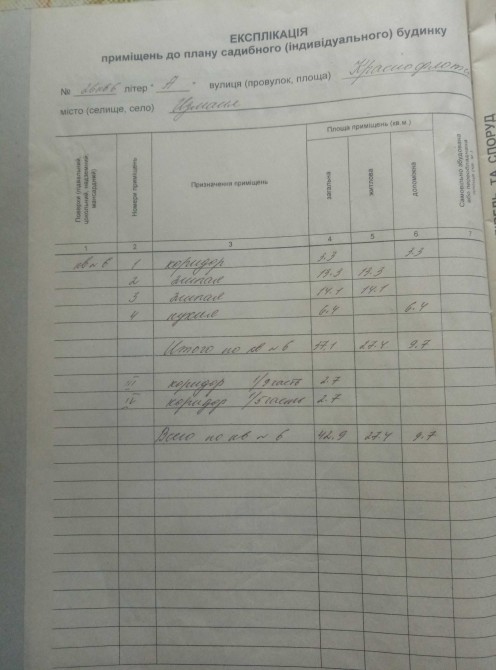 ЕКСПЛІКАЦІЯ
приміщень до плану садибного (індивідуального) будинку
№ літер " А " вулиця (провулок, площа)
місто (селище, село)
Поверхи (підвальний, цокольний, надземний, мансардний)
Номери приміщень
Призначення приміщень
Площа приміщень (кв.м.)
загальна
житлова
допоміжна
Самовільно збудована
1 2 3 4 5 6 7
кв № 6 1 коридор 3.3 3.3
2 жилая 13.3 13.3
3 жилая 14.1 14.1
4 кухня 6.4 6.4
Итого по кв № 6 37.1 27.4 9.7
коридор 2.7
IV коридор 1/5 часть 2.7
Всего по кв № 6 42.9 27.4 9.7
ТА СПОРУД